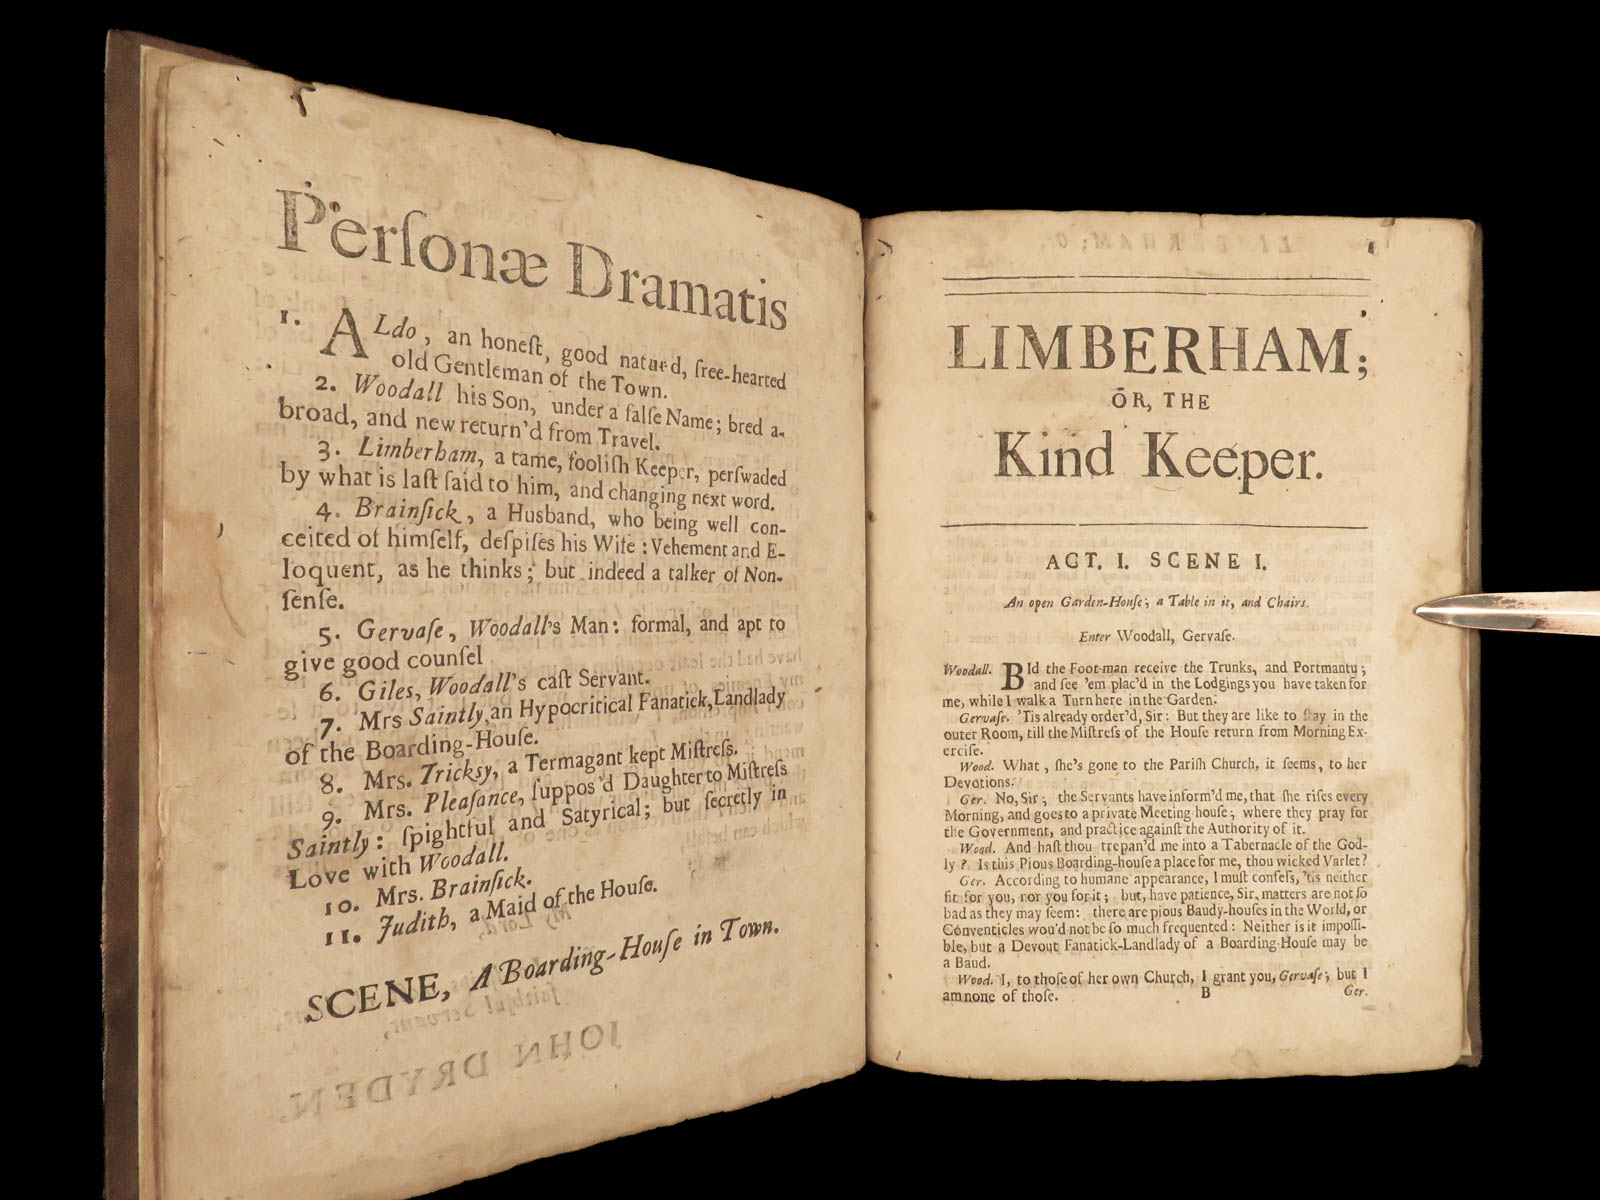 Perſonæ Dramatis
1. ALdo, an honeſt, good natur'd, free-hearted
old Gentleman of the Town.
2. Woodall his Son, under a falſe Name; bred a-
broad, and new return'd from Travel.
3. Limberham, a tame, fooliſh Keeper, perſwaded
by what is laſt ſaid to him, and changing next word.
4. Brainſick, a Husband, who being well con-
ceited of himſelf, deſpiſes his Wife: Vehement and E-
loquent, as he thinks; but indeed a talker of Non-
ſenſe.
5. Gervaſe, Woodall's Man: formal, and apt to
give good counſel
6. Giles, Woodall's caſt Servant.
7. Mrs Saintly, an Hypocritical Fanatick, Landlady
of the Boarding-Houſe.
8. Mrs. Tricksy, a Termagant kept Miſtreſs.
9. Mrs. Pleaſance, ſuppos'd Daughter to Miſtreſs
Saintly: ſpightful and Satyrical; but ſecretly in
Love with Woodall.
10. Mrs. Brainſick.
11. Judith, a Maid of the Houſe.
SCENE, A Boarding-Houſe in Town.
JOHN DRYDEN.
LIMBERHAM;
OR, THE
Kind Keeper.
ACT. I. SCENE I.
An open Garden-Houſe; a Table in it, and Chairs.
Enter Woodall, Gervaſe.
Woodall. BId the Foot-man receive the Trunks, and Portmantu;
and ſee 'em plac'd in the Lodgings you have taken for
me, while I walk a Turn here in the Garden.
Gervaſe. 'Tis already order'd, Sir: But they are like to ſtay in the
outer Room, till the Miſtreſs of the Houſe return from Morning Ex-
erciſe.
Wood. What, ſhe's gone to the Pariſh Church, it ſeems, to her
Devotions.
Ger. No, Sir; the Servants have inform'd me, that ſhe riſes every
Morning, and goes to a private Meeting-houſe; where they pray for
the Government, and practice againſt the Authority of it.
Wood. And haſt thou trepan'd me into a Tabernacle of the God-
ly? Is this Pious Boarding-houſe a place for me, thou wicked Varlet?
Ger. According to humane appearance, I muſt confeſs, 'tis neither
fit for you, nor you for it; but, have patience, Sir, matters are not ſo
bad as they may ſeem: there are pious Baudy-houſes in the World, or
Conventicles wou'd not be ſo much frequented: Neither is it impoſſi-
ble, but a Devout Fanatick-Landlady of a Boarding-Houſe may be
a Baud.
Wood. I, to thoſe of her own Church, I grant you, Gervaſe; but I
am none of thoſe.
B
Ger.